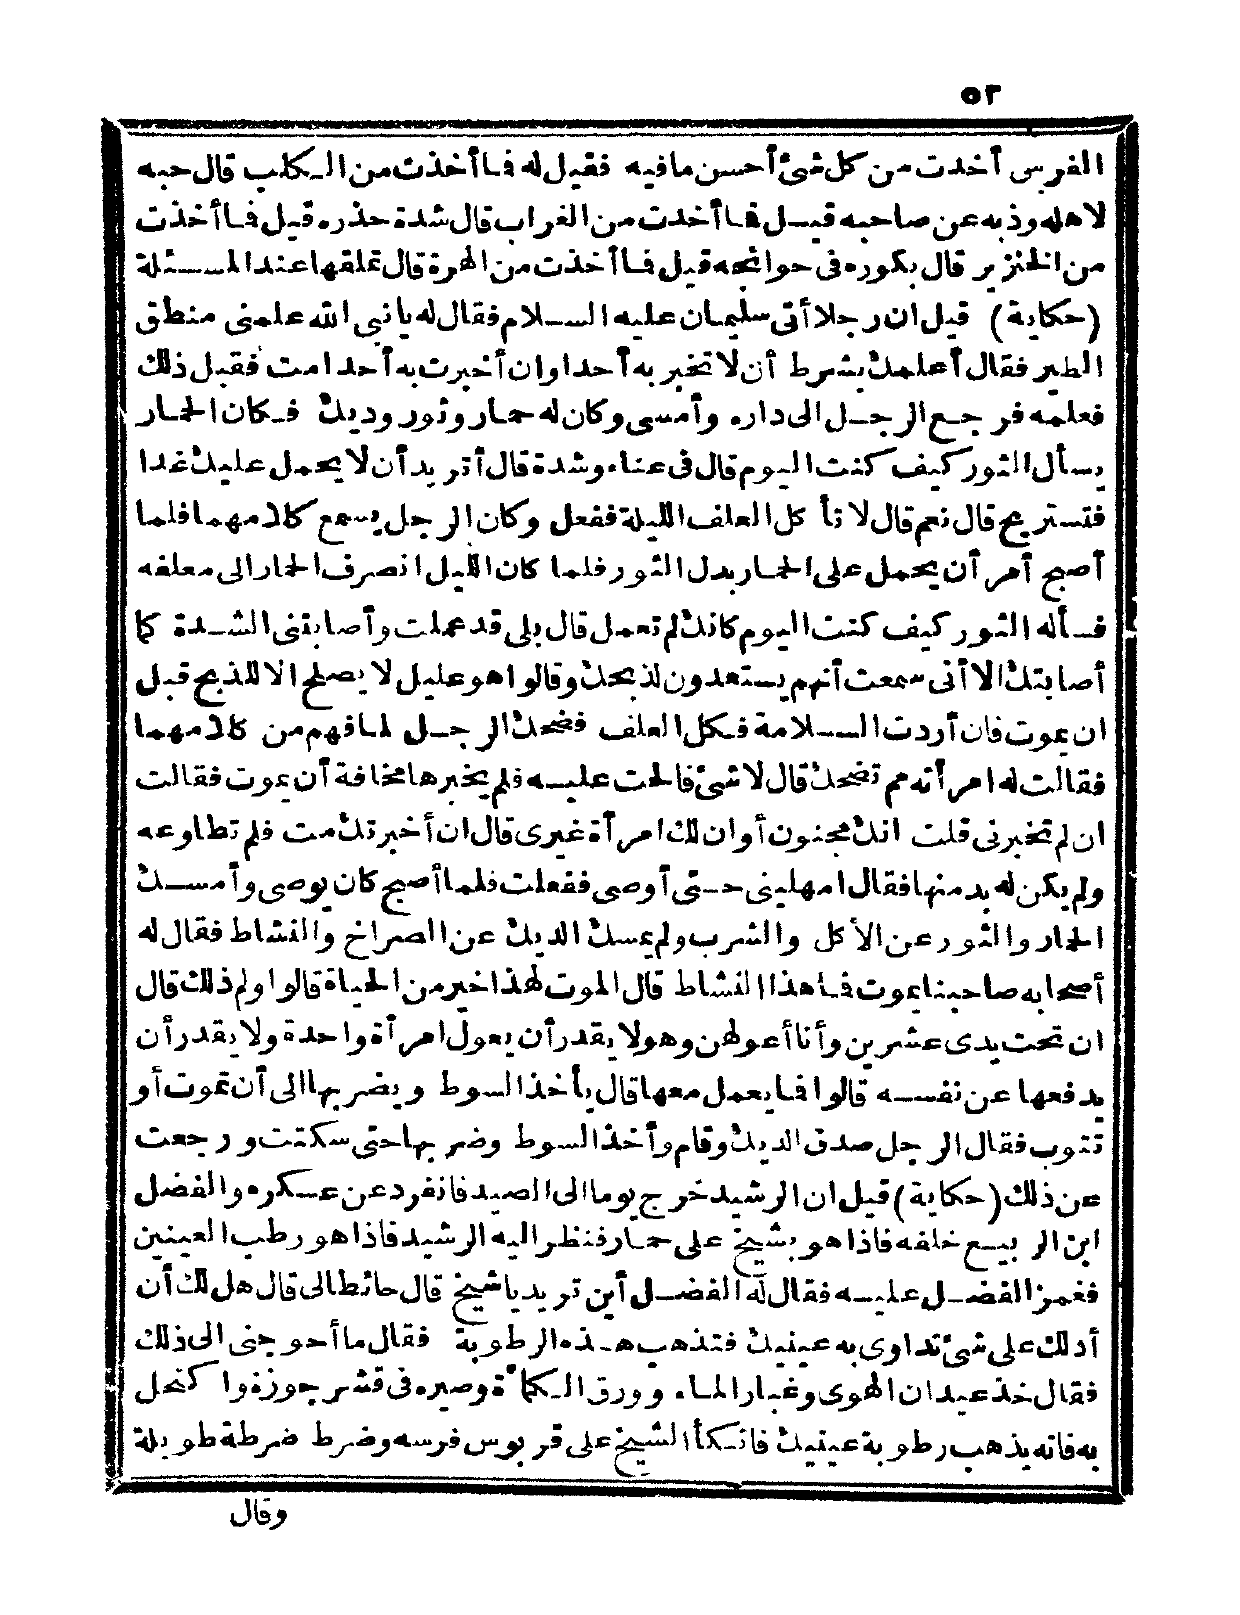 ٥٢
الفرس أخذت من كل شئ أحسن مافيه فقيل له فما أخذت من الكلب قال حبه
لاهله وذبه عن صاحبه قيل فما أخذت من الغراب قال شدة حذره قيل فما أخذت
من الخنزير قال بكوره فى حوائجه قيل فما أخذت من الهرة قال تملقها عند المسئلة
(حكاية) قيل ان رجلا أتى سليمان عليه السلام فقال له يانبى الله علمنى منطق
الطير فقال أعلمك بشرط أن لا تخبر به أحدا وان أخبرت به أحدا مت فقبل ذلك
فعلمه فرجع الرجل الى داره وأمسى وكان له حمار وثور وديك فكان الحمار
يسأل الثور كيف كنت اليوم قال فى عناء وشدة قال أتريد أن لا يحمل عليك غدا
فتستريح قال نعم قال لا تأكل العلف الليلة ففعل وكان الرجل يسمع كلامهما فلما
أصبح أمر أن يحمل على الحمار بدل الثور فلما كان الليل انصرف الحمار الى معلفه
فسأله الثور كيف كنت اليوم كانك لم تعمل قال بلى قد عملت وأصابتنى الشدة كما
أصابتك الا أنى سمعت أنهم يستعدون لذبحك وقالوا هو عليل لا يصلح الا للذبح قبل
ان يموت فان أردت السلامة فكل العلف فضحك الرجل لمافهم من كلامهما
فقالت له امرأته مم تضحك قال لا شئ فالحت عليه فلم يخبرها مخافة أن يموت فقالت
ان لم تخبرنى قلت انك مجنون أو ان لك امرأة غيرى قال ان أخبرتك مت فلم تطاوعه
ولم يكن له بد منها فقال امهلينى حتى أوصى ففعلت فلما أصبح كان يوصى وأمسك
الحمار والثور عن الأكل والشرب ولم يمسك الديك عن الصراخ والنشاط فقال له
أصحابه صاحبنا يموت فما هذا النشاط قال الموت لهذا خير من الحياة قالوا ولم ذلك قال
ان تحت يدى عشرين وأنا أعولهن وهو لا يقدر أن يعول امرأة واحدة ولا يقدر أن
يدفعها عن نفسه قالوا فما يعمل معها قال يأخذ السوط ويضربها الى أن تموت أو
تتوب فقال الرجل صدق الديك وقام وأخذ السوط وضربها حتى سكتت ورجعت
عن ذلك (حكاية) قيل ان الرشيد خرج يوما الى الصيد فانفرد عن عسكره والفضل
ابن الربيع خلفه فاذا هو بشيخ على حمار فنظر اليه الرشيد فاذا هو رطب العينين
فغمز الفضل عليه فقال له الفضل أين تريد يا شيخ قال حائطا لى قال هل لك أن
أدلك على شئ تداوى به عينيك فتذهب هذه الرطوبة فقال ما أحوجنى الى ذلك
فقال خذ عيدان الهوى وغبار الماء وورق الكمأة وصيره فى قشر جوزة واكتحل
به فانه يذهب رطوبة عينيك فاتكأ الشيخ على قربوس فرسه وضرط ضرطة طويلة
وقال